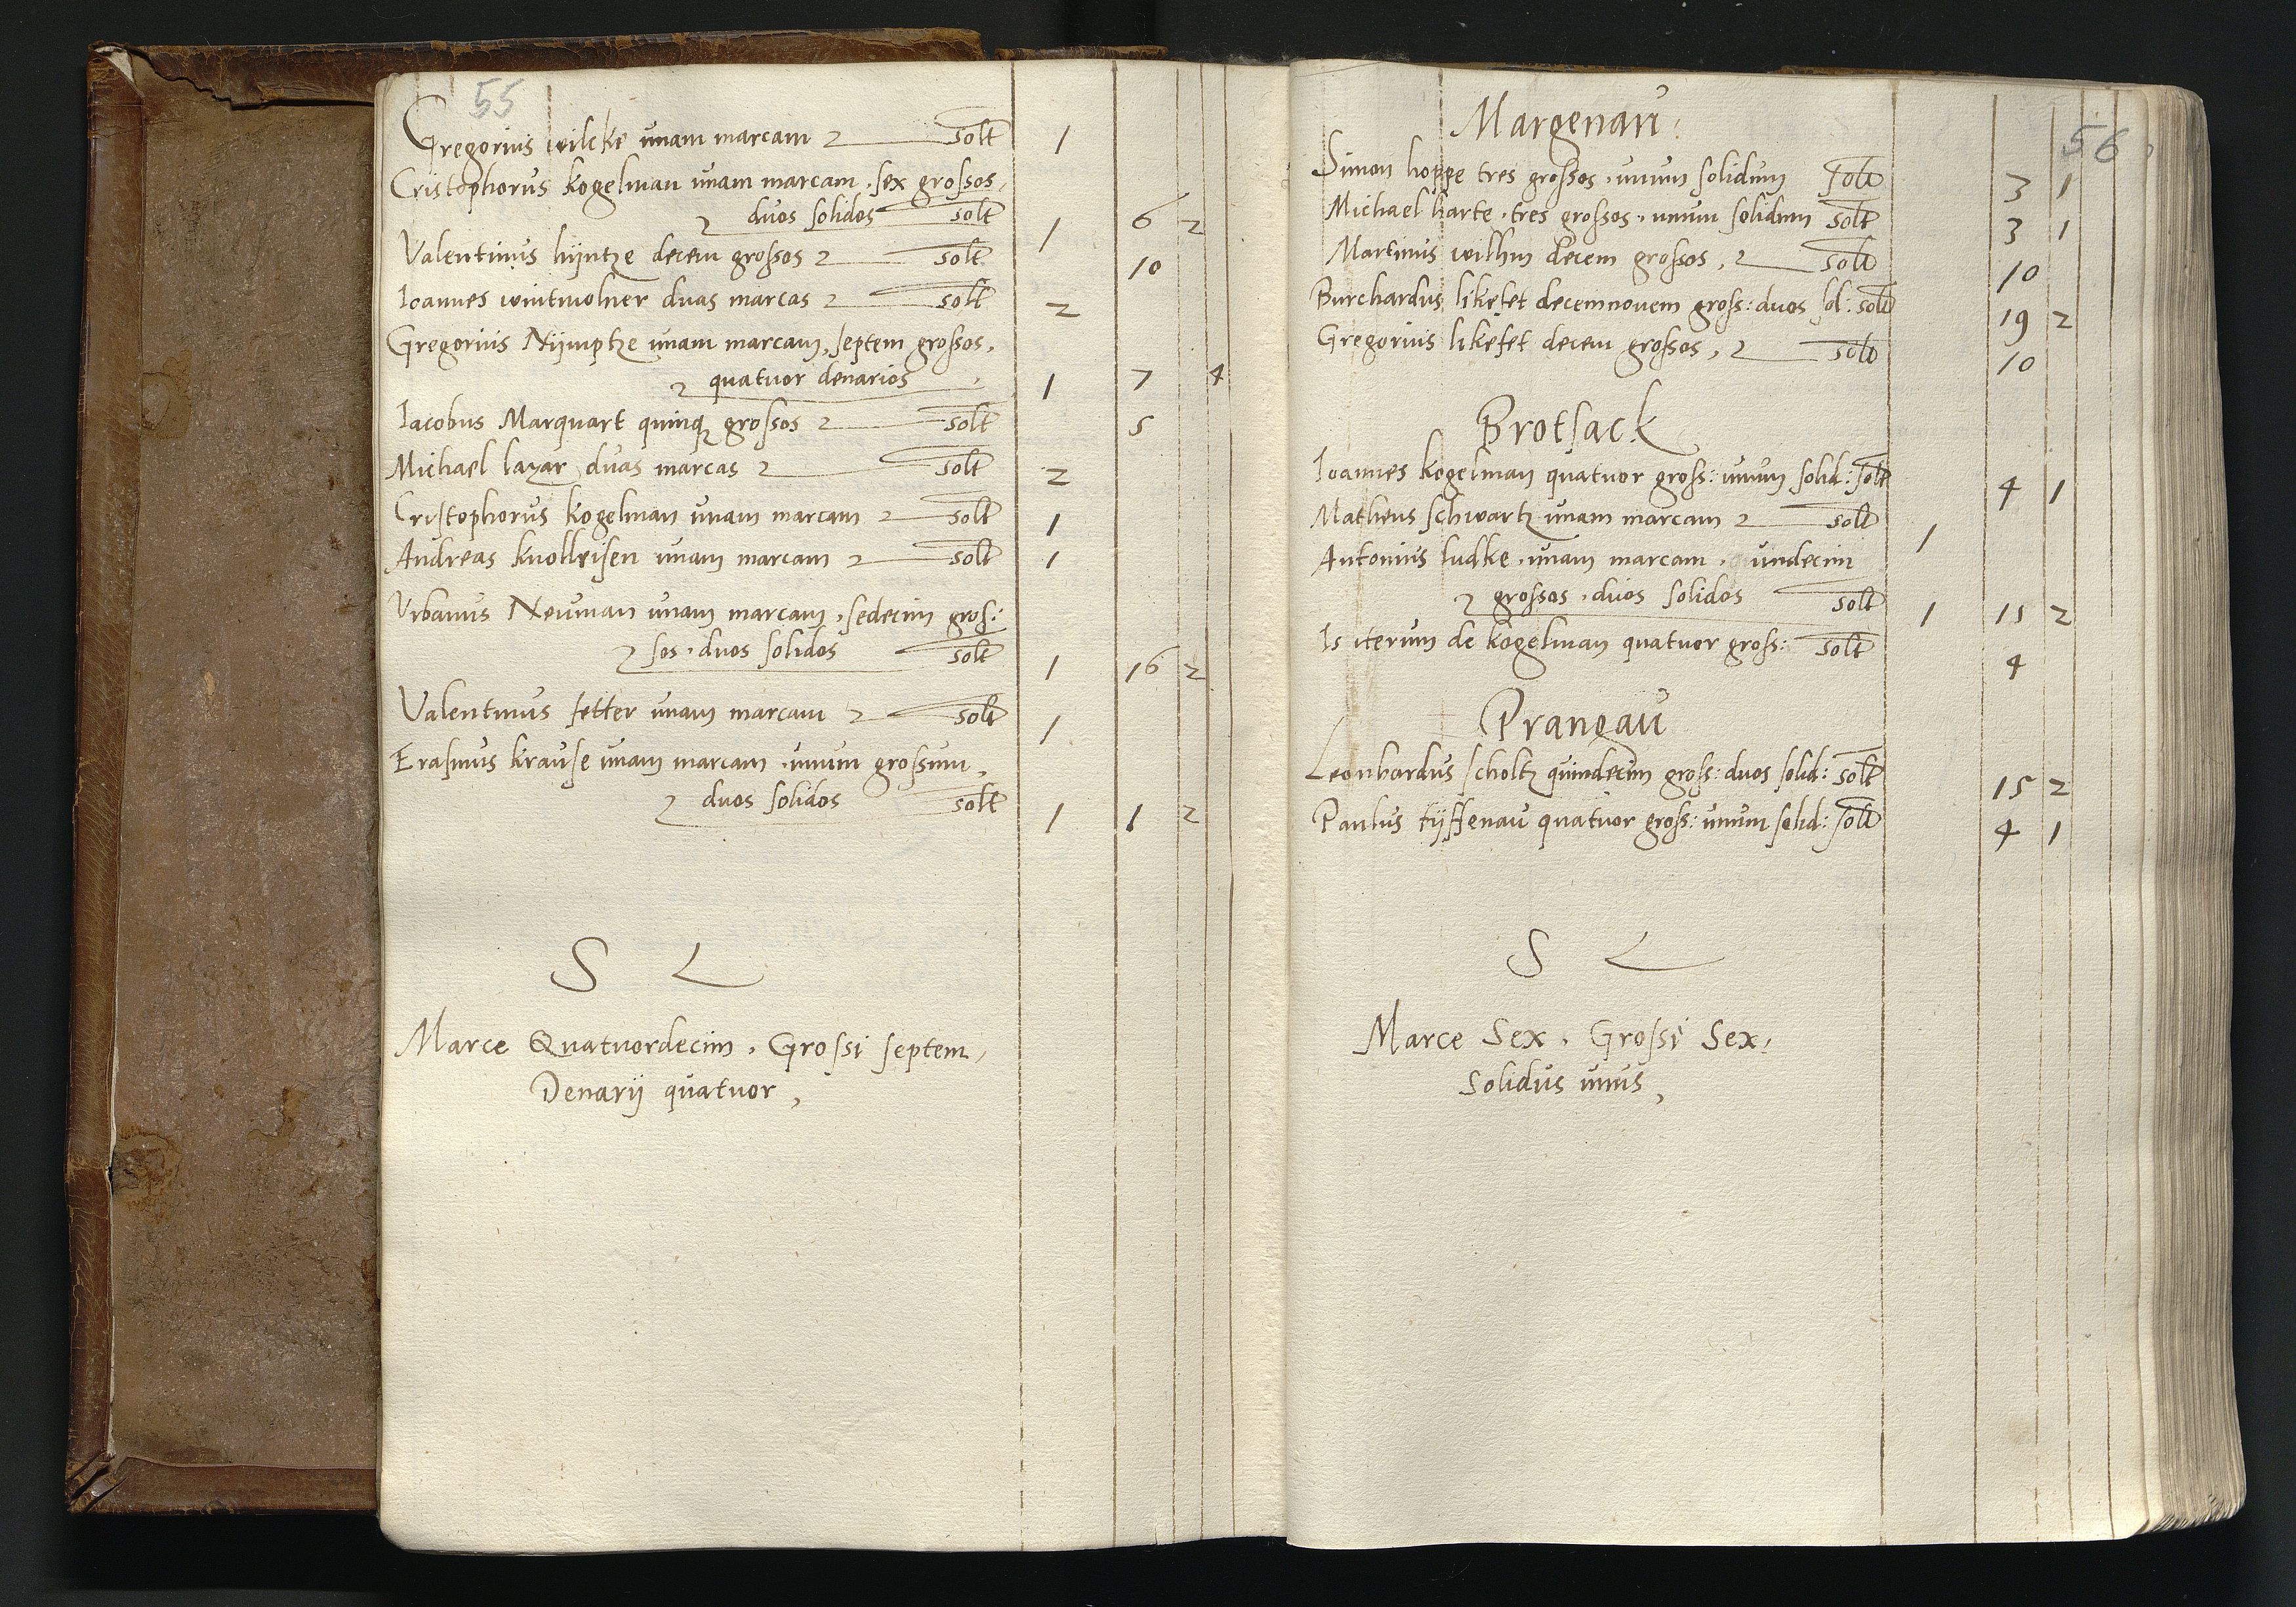 55
Gregorius wilcke unam marcam solt 1
Cristophorus kogelman unam marcam . sex grossos,
duos solidos solt 1 6 2
Valentinus hijntze decem grossos solt 10
Ioannes wintmolner duas marcas solt 2
Gregorius Nijmptze unam marcam, septem grossos,
quatuor denarios 1 7 4
Iacobus Marquart quinq grossos solt 5
Michael lazar duas marcas solt 2
Cristophorus kogelman unam marcam solt 1
Andreas knolleisen unam marcam solt 1
Urbanus Neuman unam marcam . sedecim gros:
sos . duos solidos solt 1 16 2
Valentinus fetter unam marcam solt 1
Erasmus krause unam marcam . unum grossum,
duos solidos solt 1 1 2
S L
Marce Quatuordecim . Grossi septem,
Denarij quatuor,
56
Margenau
Simon hoppe tres grossos . unum solidum solt 3 1
Michael harte . tres grossos . unum solidum solt 3 1
Martinus wilhm decem grossos, solt 10
Burchardus likefet decemnovem gross: duos sol: solt 19 2
Gregorius likefet decem grossos, solt 10
Brotsack
Ioannes kogelman quatuor gross: unum solid: solt 4 1
Matheus schwartz unam marcam solt 1
Antonius ludke . unam marcam . undecim
grossos . duos solidos solt 1 11 2
Is iterum de kogelman quatuor gross: solt 4
Prangau
Leonhardus scholtz quindecim gross: duos solid: solt 15 2
Paulus tijffenau quatuor gross: unum solid: solt 4 1
S L
Marce Sex . Grossi Sex,
Solidus unus,